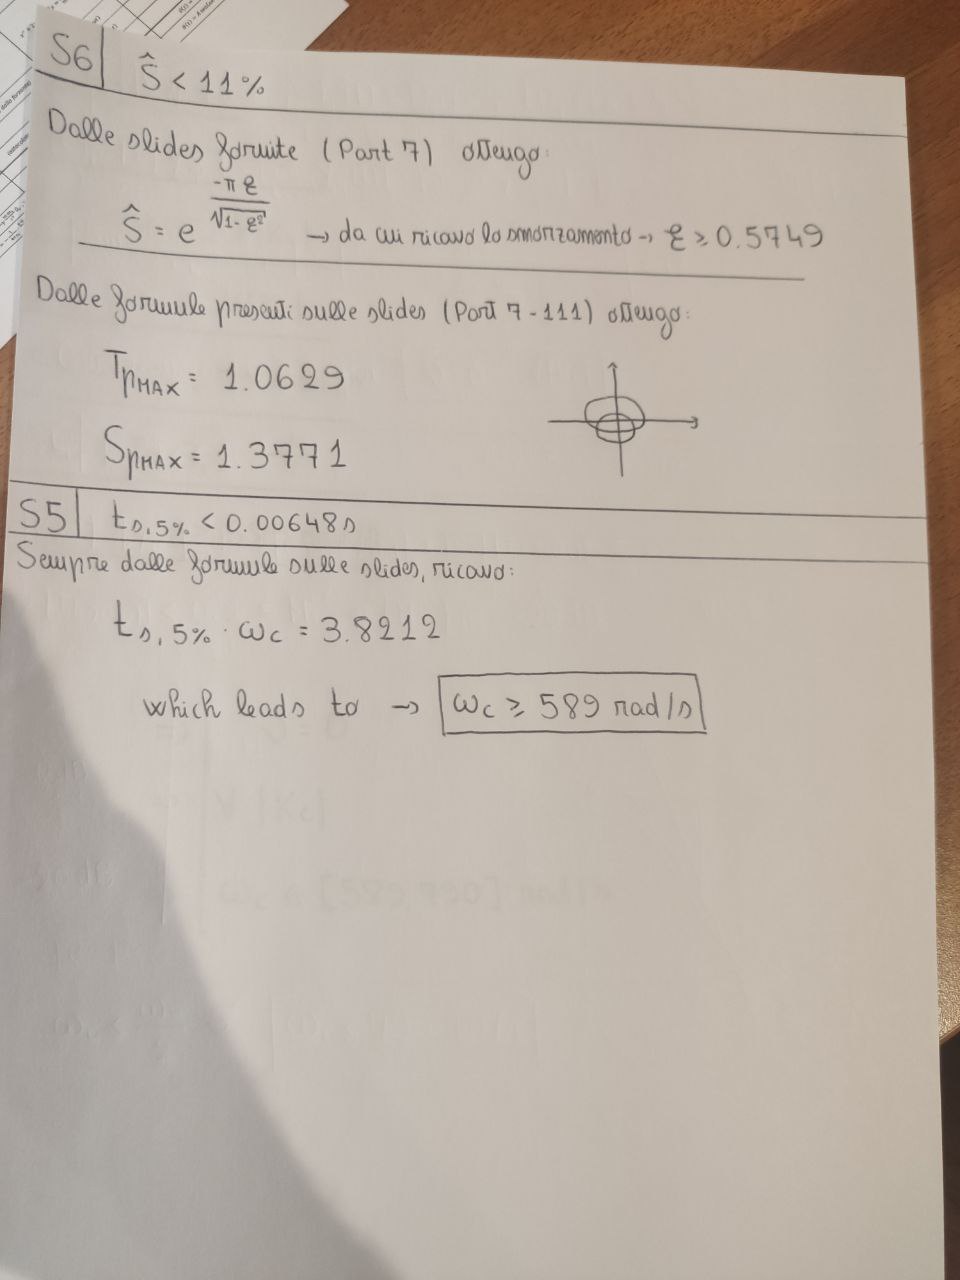 S6 Ŝ < 11%
Dalle slides fornite (Part 7) ottengo:
Ŝ = e^(-πξ/√(1-ξ²)) → da cui ricavo lo smorzamento → ξ ≥ 0.5749
Dalle formule presenti sulle slides (Part 7-111) ottengo:
TpMAX = 1.0629
SpMAX = 1.3771
S5 ts,5% < 0.00648s
Sempre dalle formule sulle slides, ricavo:
ts,5% · ωc = 3.8212
which leads to → ωc ≥ 589 rad/s